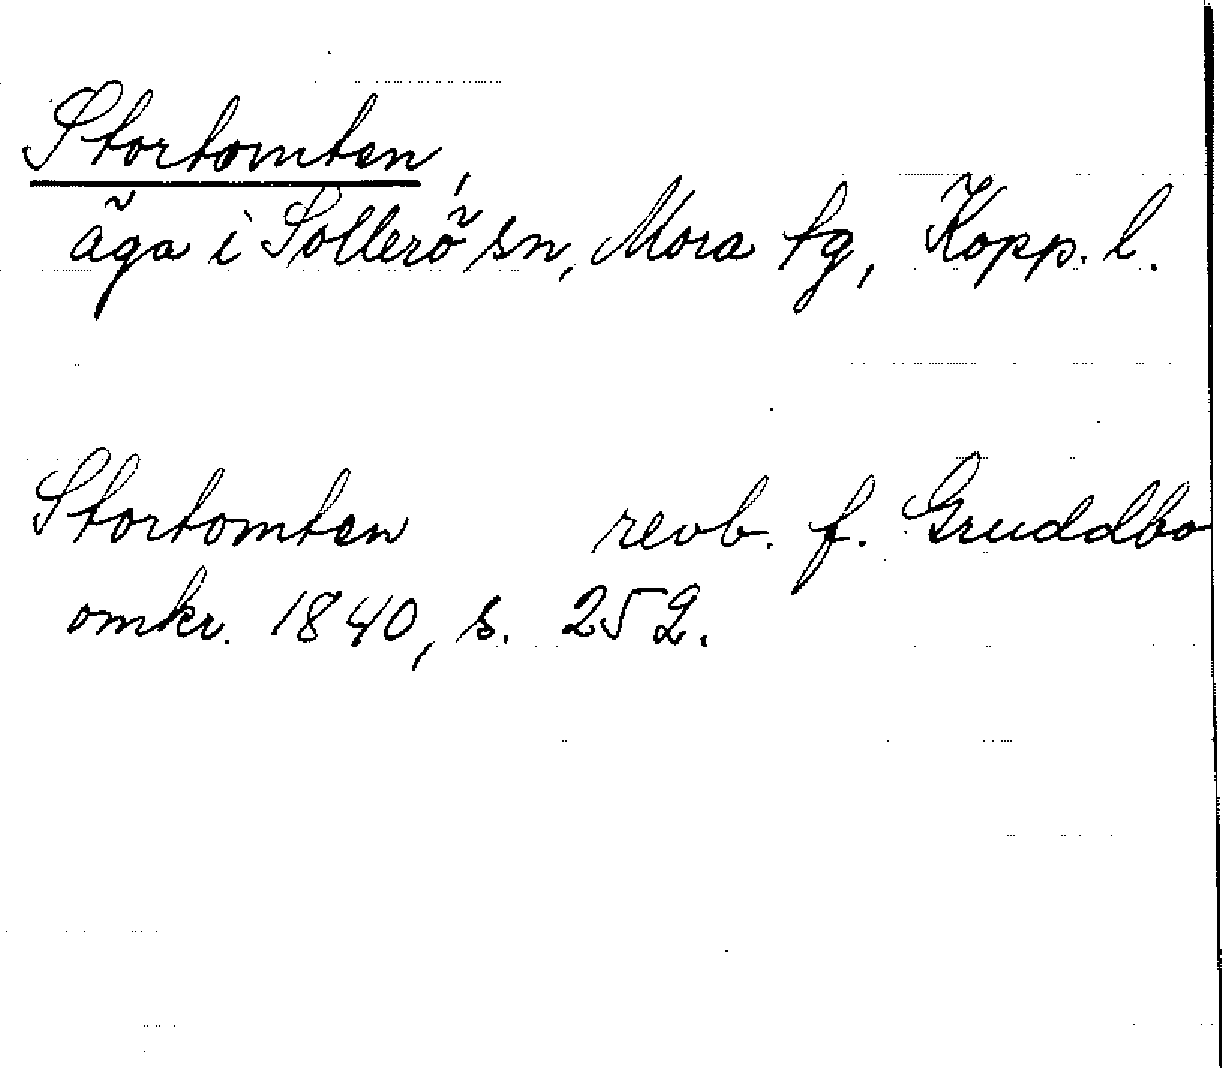 Stortomten,
äga i Sollerö sn, Mora tg, Kopp. l.
Stortomten revb. f. Gruddbo
omkr. 1840, s. 252.